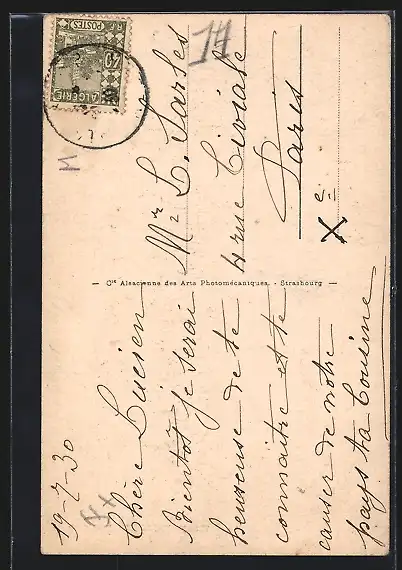 19-7-30
Chère Lucien
Bientot je serai
heureuse de te
connaitre et te
causer de notre
pays ta Cousine
— Cie Alsacienne des Arts Photomécaniques. - Strasbourg —
POSTES
ALGERIE
40
14
Mr L. Sarles
4 rue Civiale
Paris
Xe